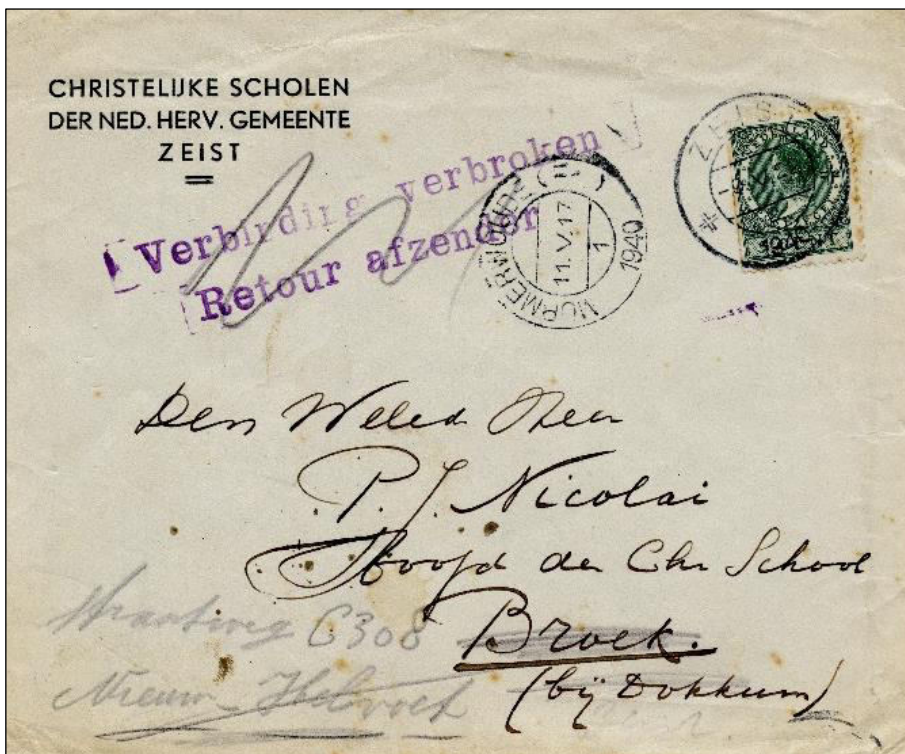 CHRISTELIJKE SCHOLEN
DER NED. HERV. GEMEENTE
ZEIST
Verbinding verbroken
Retour afzender
MURMERWOUDE
11.V.17
1
1940
ZEIST
Den Weled Heer
P. J. Nicolai
Hoofd der Chr School
Broek.
(bij Dokkum)
Straatweg C308
Nieuw-Helvoet